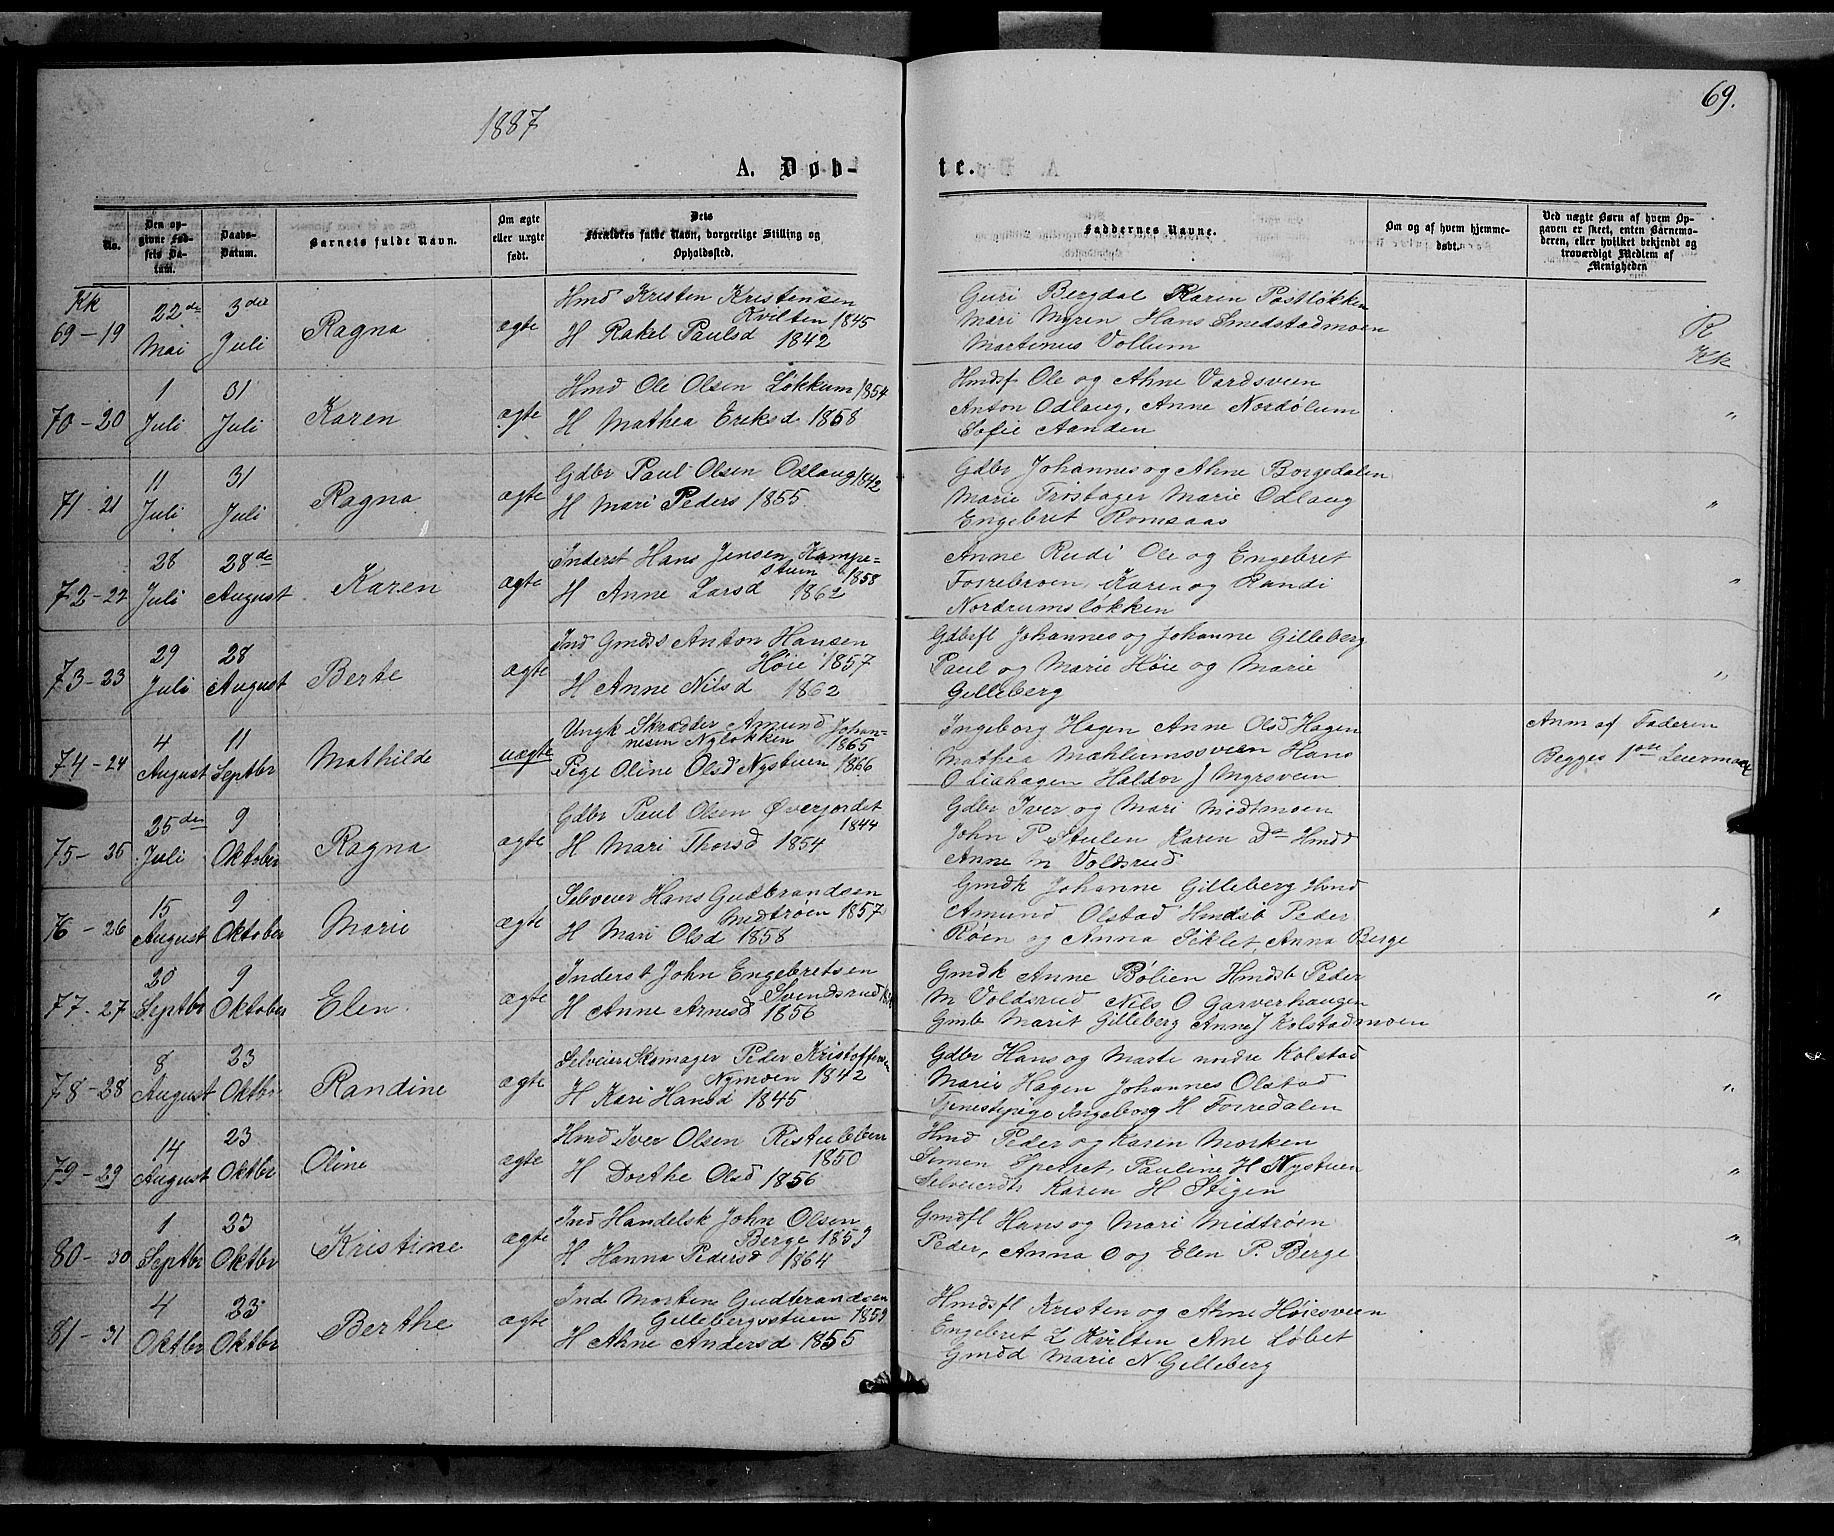 1887
69.
A. Døb-
te.
No.
Den op-
givne Fød-
sels Da-
tum.
Daabs-
Datum.
Barnets fulde Navn.
Om ægte
eller uægte
født.
Dets
Forældres fulde Navn, borgerlige Stilling og
Opholdssted.
Faddernes Navne.
Om og af hvem hjemme-
døbt.
Ved uægte Børn af hvem Op-
gaven er skeet, enten Barnemo-
deren, eller hvilket bekjendt og
troværdigt Medlem af
Menigheden
Kk
69-19
22de
Mai
3die
Juli
Ragna
ægte
Hmd Kristen Kristensen
Kvilten 1845
H Rakel Paulsd 1842
Guri Bergdal Karen Pastløkken
Mari Myren Hans Smedstadmoen
Martinus Vollum
R
Kk
70-20
1
Juli
31
Juli
Karen
ægte
Hmd Ole Olsen Løkkum 1854
H Mathea Eriksd 1858
Hmdsf Ole og Ahne Vardsveen
Anton Odlaug, Anne Nordølum
Sofie Aanden
"
71-21
11
Juli
31
Juli
Ragna
ægte
Gdbr Paul Olsen Odlaug 1842
H Mari Peders 1855
Gdbr Johannes og Ahne Borgedalen
Marie Trøstager Marie Odlaug
Engebret Romsaas
"
72-22
28
Juli
28de
August
Karen
ægte
Inderst Hans Jensen Kampe-
stuen 1858
H Anne Larsd 1862
Anne Rudi Ole og Engebret
Forrebroen, Karen og Randi
Nordrumsløkken
"
73-23
29
Juli
28
August
Berte
ægte
Ind Gmdss Anton Hansen
Høie 1857
H Anne Nilsd 1862
Gdbrfl Johannes og Johanne Gilleberg
Paul og Marie Høie og Marie
Gilleberg
"
74-24
4
August
11
Septbr
Mathilde
uægte
Ungk Skrædder Amund Johan-
nesen Nyløkken 1865
Pige Oline Olsd Nystuen 1866
Ingeborg Hagen Anne Olsd Hagen
Mathea Mæhlumssveen Hans
Odiahagen Haldor J Myrsveen
Anm af Faderen
Begges 1ste Leiermaal
75-25
25de
Juli
9
Oktober
Ragna
ægte
Gdbr Paul Olsen Øverjordet
1844
H Mari Thorsd 1854
Gdbr Iver og Mari Midtmoen
John P Stulen Karen Do Hmdd
Anne M Voldsrud
76-26
15
August
9
Oktober
Marie
ægte
Selveier Hans Gudbrandsen
Midtrøen 1857
H Mari Olsd 1858
Gmdk Johanne Gilleberg Hmd
Amund Olstad Hmdsb Peder
Røen og Anna Siklet, Anna Berge
"
77-27
20
Septbr
9
Oktober
Elen
ægte
Inderst John Engebretsen
Svendsrud
H Anne Arnesd 1856
Gmdk Anne Bølien Hmdsb Peder
M Voldsrud Nils O Garverhaugen
Gmb Marit Gilleberg Anne J Kolstadmoen
"
78-28
8
August
23
Oktbr
Randine
ægte
Selveier Skomager Peder Kristoffersen
Nymoen 1842
H Kari Hansd 1845
Gdbr Hans og Marte nndre Kolstad
Marie Hagen Johannes Olstad
Tjenestepige Ingeborg H Forredalen
"
79-29
14
August
23
Oktbr
Oline
ægte
Hmd Iver Olsen Ristuleben
1850
H Dorthe Olsd 1856
Hmd Peder og Karen Morken
Simen Sperret, Pauline H Nystuen
Selveierdtr Karen H Stigen
"
80-30
1
Septbr
23
Oktbr
Kristine
ægte
Ind Handelsk John Olsen
Berge 1853
H Hanna Pedersd 1864
Gmdfl Hans og Mari Midtrøen
Peder, Anna O og Elen P. Berge
"
81-31
4
Oktbr
23
Oktbr
Berthe
ægte
Ind Morten Gudbrandsen
Gillebergsstuen 1859
H Ahne Andersd 1855
Hmdsfl Kristen og Ahne Høiesveen
Engebret L Kvilten Ane Løbet
Gmdd Marie N Gilleberg